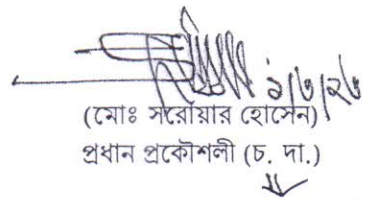 ১/৩/২৬
(মোঃ সরোয়ার হোসেন)
প্রধান প্রকৌশলী (চ. দা.)